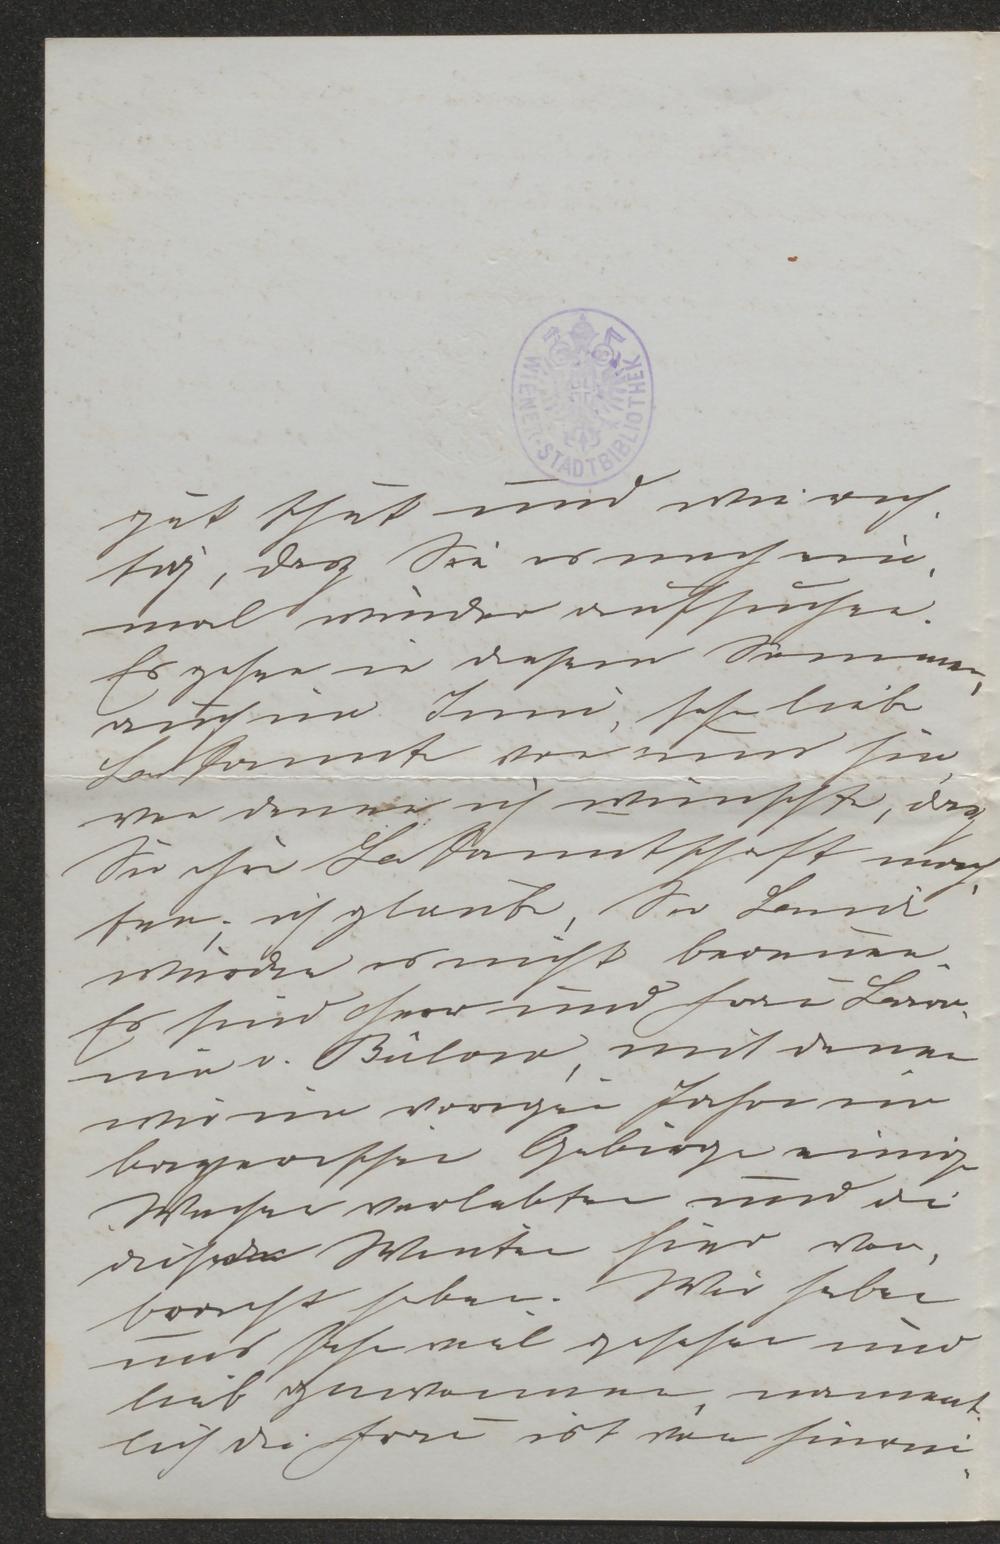 WIENER-STADTBIBLIOTHEK
gut thut und wie rich-
tig, daß Sie es noch ein-
mal wieder aufsuchen.
Es gehen in diesem Sommer,
auch im Juni, sehr liebe
Bekannte von uns hin
von denen ich wünschte, daß
Sie ihre Bekanntschaft mach-
ten; ich glaube, Sie Beide
würden es nicht bereuen.
Es sind Herr und Frau Baro-
nin v. Bülow, mit denen
wir im vorigen Jahre im
bayerischen Gebirge einige
Wochen verlebten und die
diesen Winter hier ver-
bracht haben. Wir haben
uns sehr viel gesehen und
lieb gewonnen, nament-
lich die Frau ist von